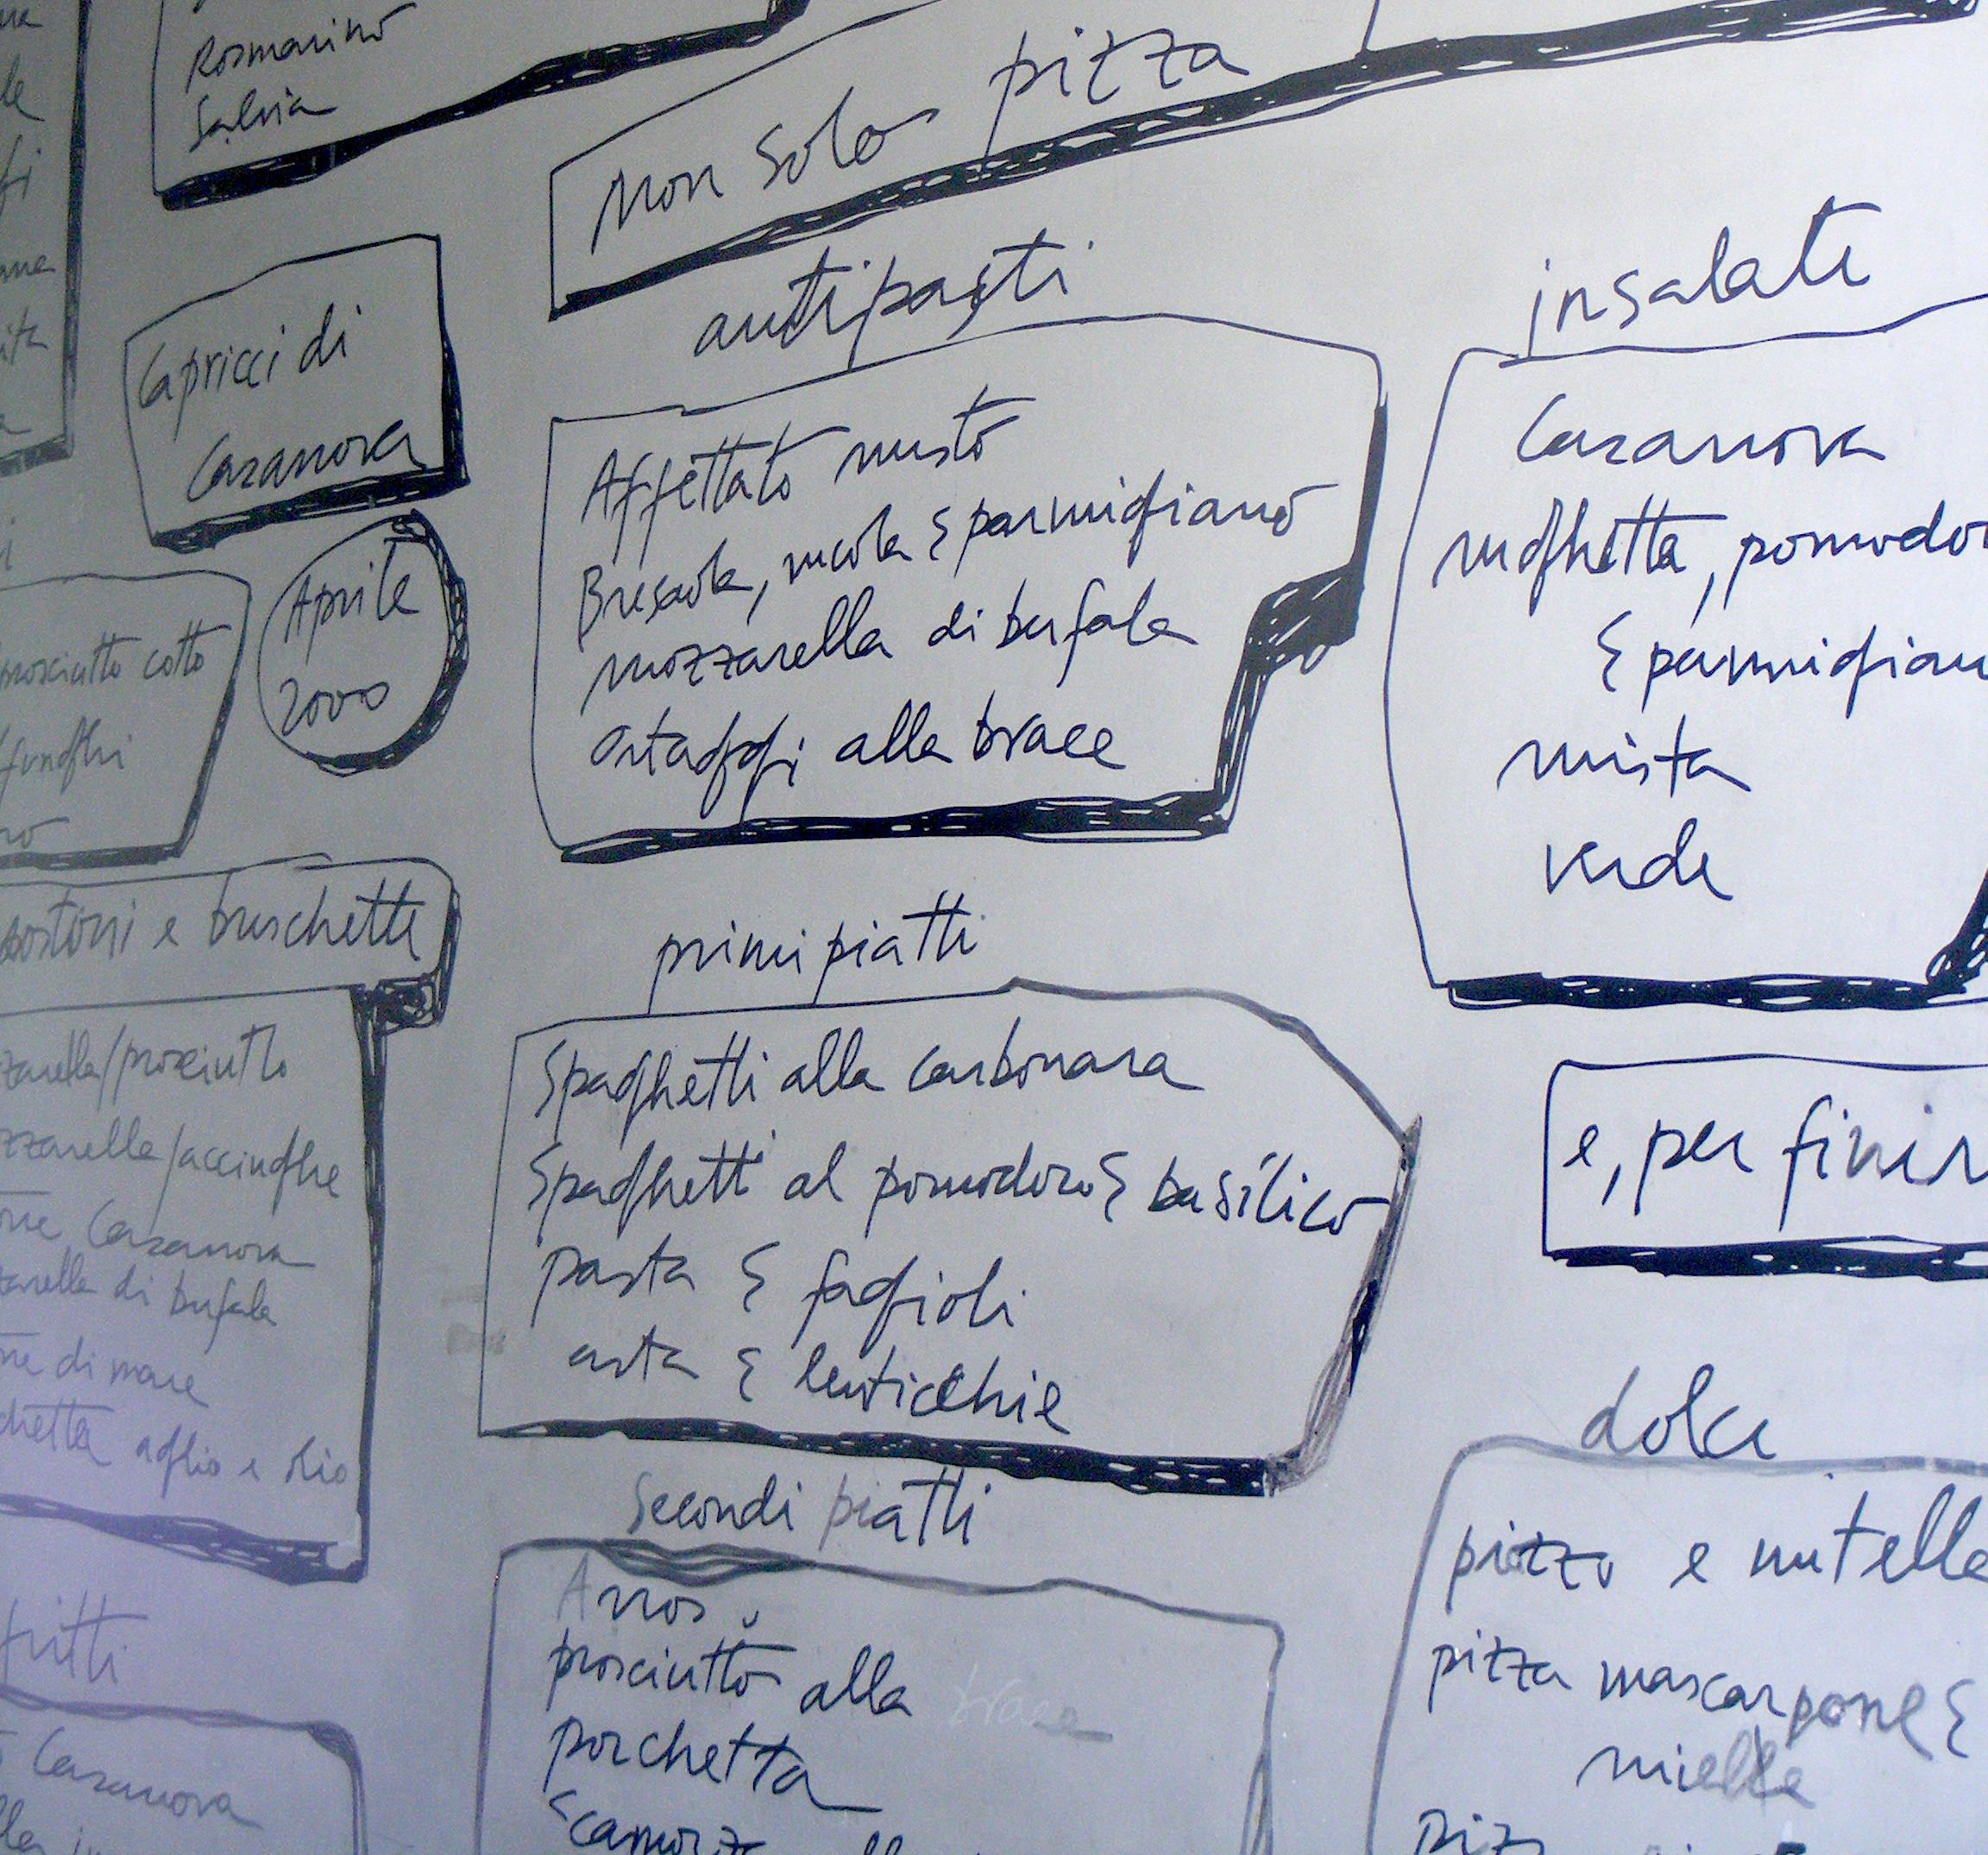 Rosmarino
Salvia
Capricci di
Casanova
Aprile
2000
prosciutto cotto
funghi
e bruschette
/prosciutto
/acciughe
Casanova
di bufala
di mare
aglio e olio
fritti
Casanova
Non Solo pizza
antipasti
Affettato misto
Bresaola, rucola & parmigiano
mozzarella di bufala
ortaggi alla brace
primi piatti
Spaghetti alla carbonara
Spaghetti al pomodoro & basilico
pasta & fagioli
asta & lenticchie
Secondi piatti
Arros
prosciutto alla brace
porchetta
insalate
Casanova
rughetta, pomodor
& parmigian
mista
verde
e, per finir
dolce
pizza e nutella
pizza mascarpone &
miele